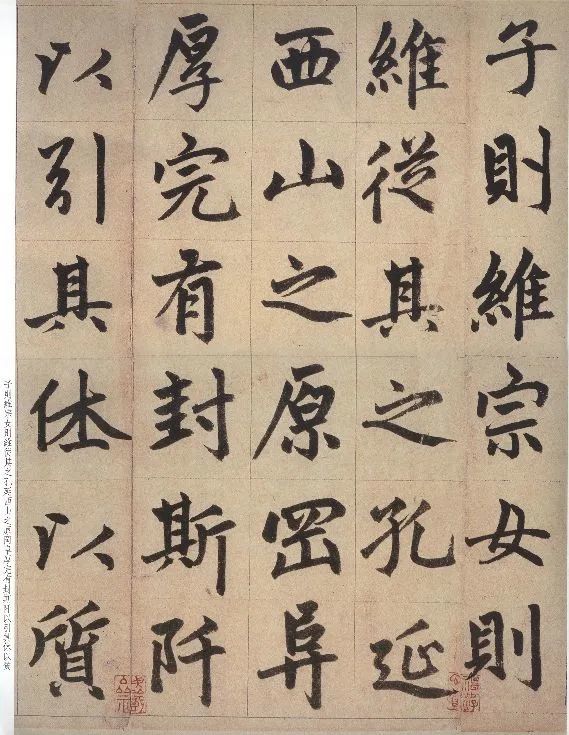 子則維宗女則
維從其之孔延
西山之原罡阜
厚完有封斯阡
以引其休以質
子則維宗女則維從其之孔延西山之原岡阜厚完有封斯阡以引其休以質